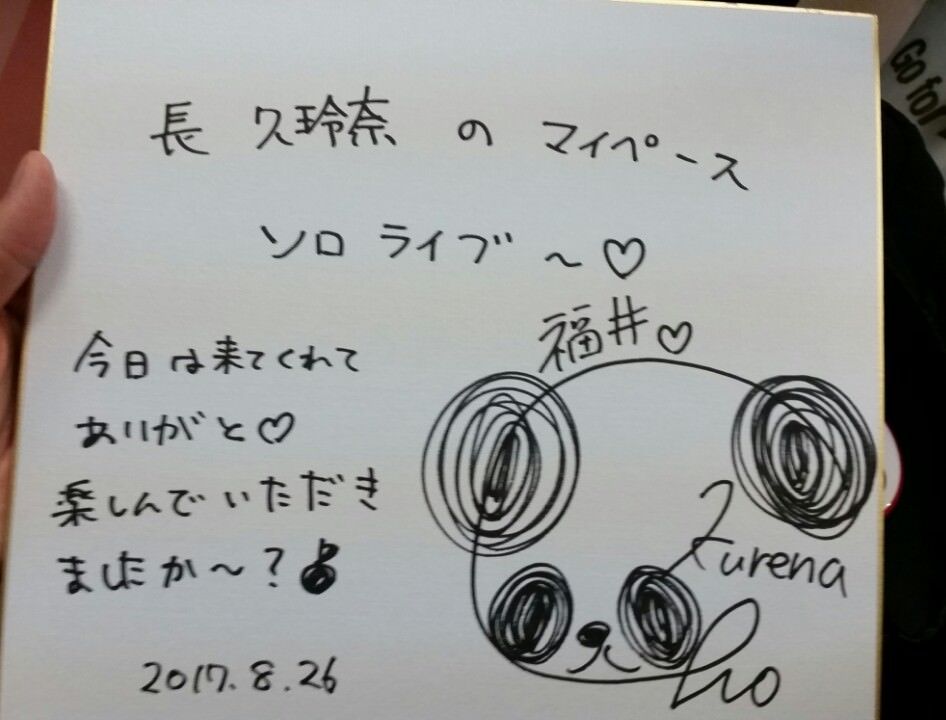 長 久玲奈 の マイペース
ソロ ライブ ~♡
福井♡
今日は来てくれて
ありがと♡
楽しんでいただき
ましたか~?
2017.8.26
Kurena
Cho
Go for